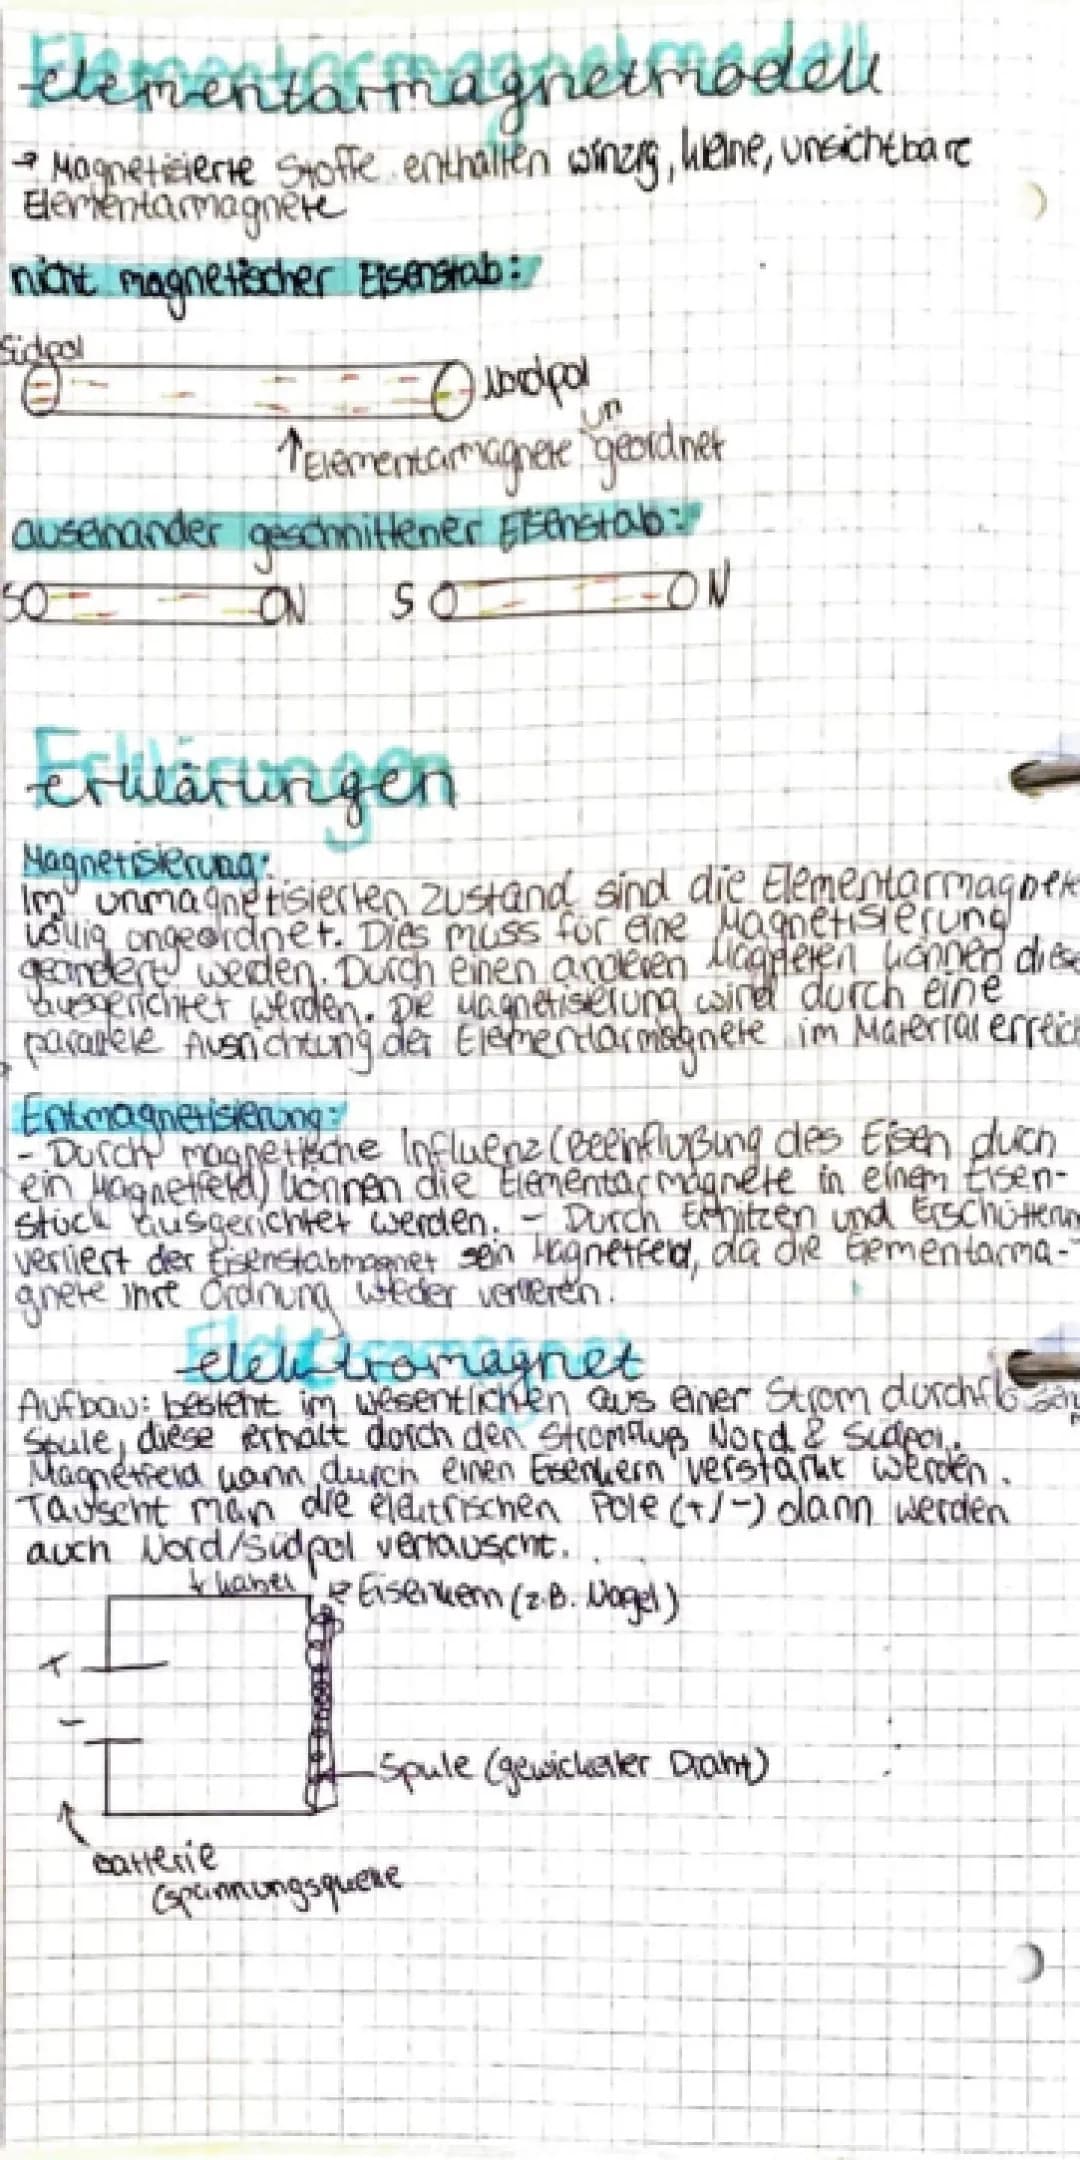 Elementarmagnetmodell
→ Magnetisierte Stoffe enthalten winzig, kleine, unsichtbare
Elementarmagnete
nicht magnetischer Eisenstab:
Südpol
Nordpol
un
↑ Elementarmagnete geordnet
auseinander geschnittener Eisenstab:
S N S N
Erklärungen
Magnetisierung:
Im unmagnetisierten Zustand sind die Elementarmagnete
völlig ongeordnet. Dies muss für eine Magnetisierung
geändert werden. Durch einen anderen Magneten können diese
ausgerichtet werden. Die Magnetisierung wird durch eine
paralele Ausrichtung der Elementarmagnete im Material erreich
Entmagnetisierung:
- Durch magnetische Influenz (Beeinflußung des Eisen durch
ein Magnetfeld) können die Elementarmagnete in einem Eisen-
stück ausgerichtet werden. - Durch Erhitzen und Erschütterun
verliert der Eisenstabmagnet sein Magnetfeld, da die Elementarma-
gnete ihre Ordnung wieder verlieren.
elektromagnet
Aufbau: besteht im wesentlichen aus einer Strom durchflossen
Spule, diese erhält dorch den Stromfluß Nord & Südpol.
Magnetfeld kann durch einen Eisenkern verstärkt werden.
Tauscht man die elektrischen Pole (+/-) dann werden
auch Nord/Südpol vertauscht.
↓ Kabel
Eisenkern (z.B. Nagel)
+
-
Spule (gewickelter Draht)
Batterie
(Spannungsquelle